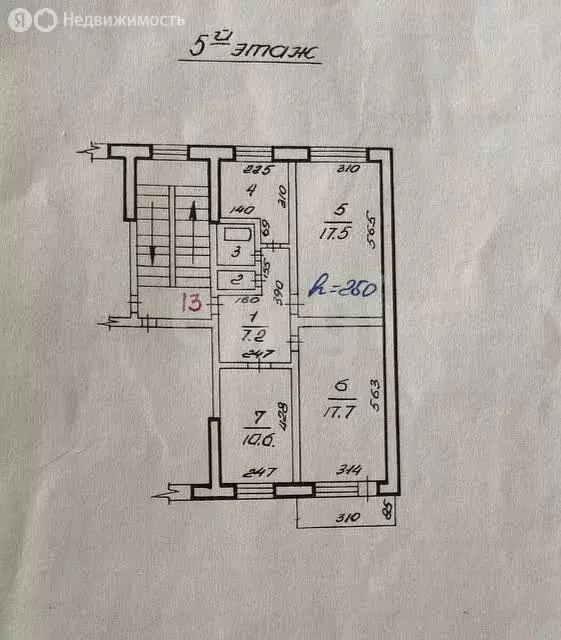 Я Недвижимость
5й этаж
225
310
4
310
140
5
17.5
565
69
3
155
2
390
h=250
13
160
1
7.2
247
6
17.7
563
7
10.6.
428
247
314
310
85